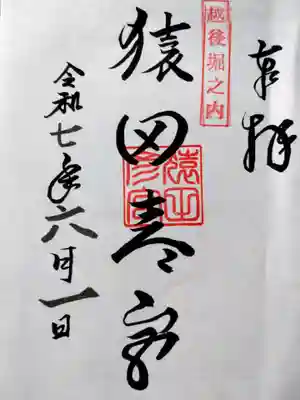 奉拝
越後堀之内
猿田彦宮
令和七年六月一日